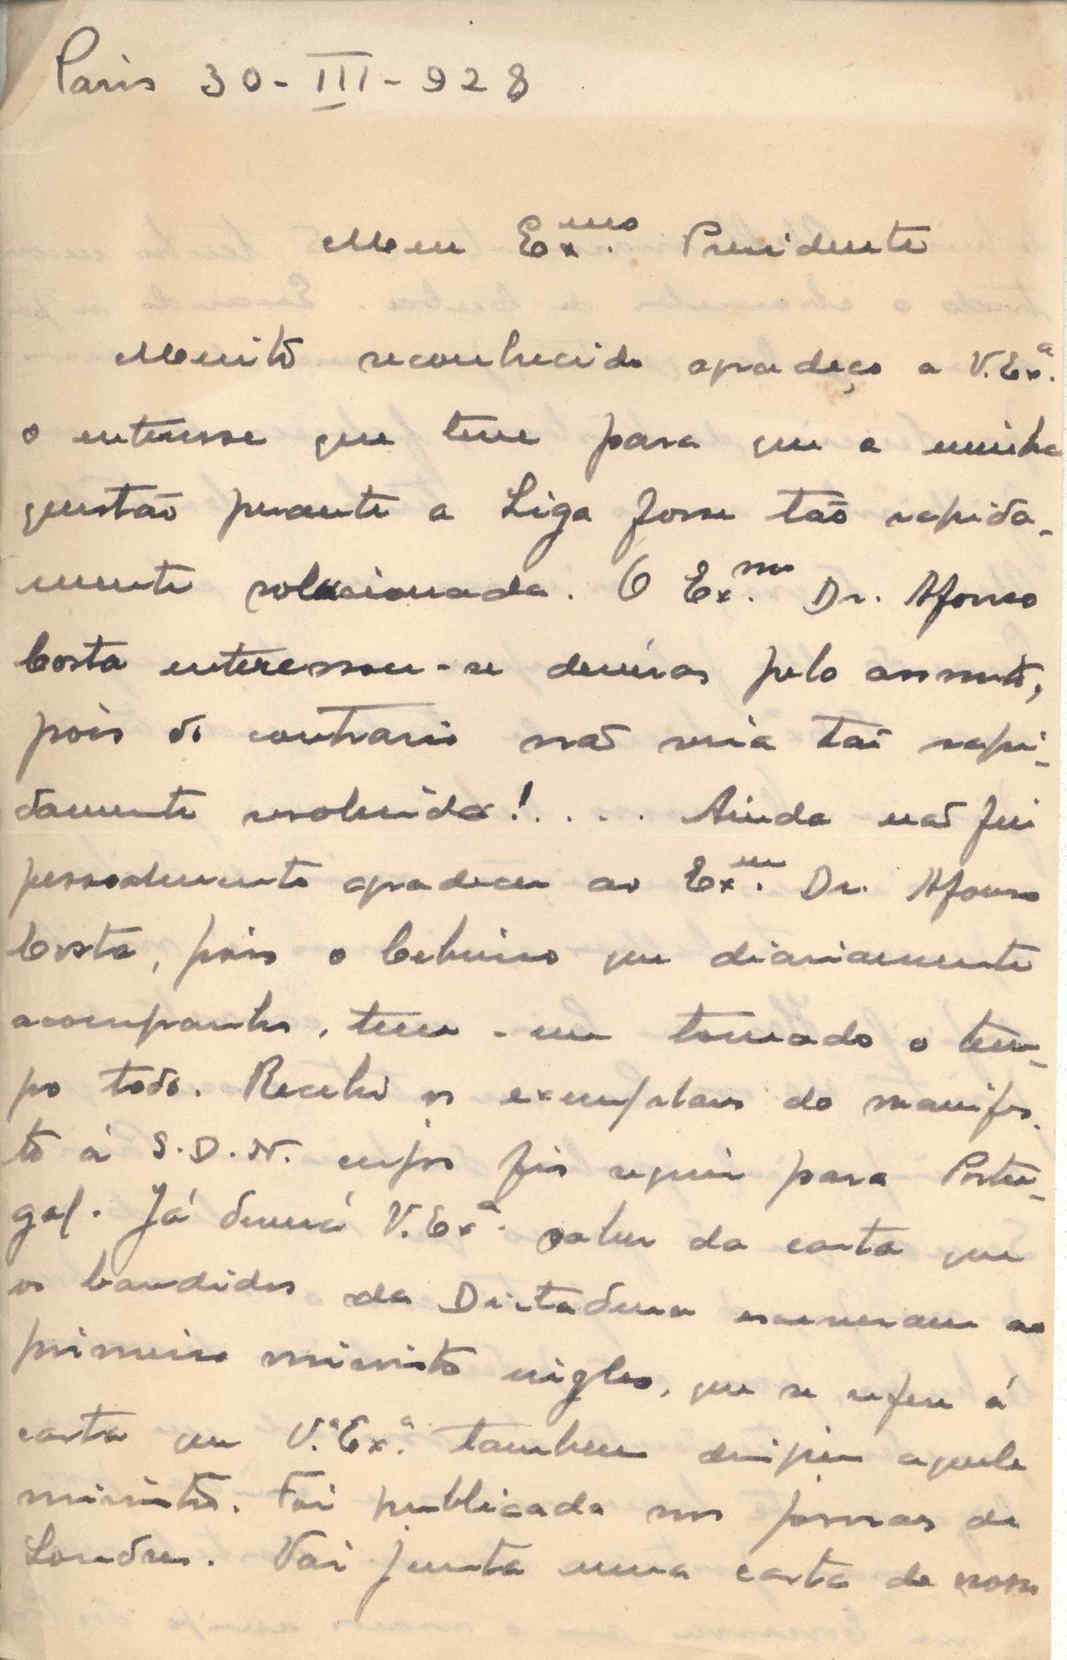 Paris 30-III-928
Meu Ex.mo Presidente
Muito reconhecido agradeço a V. Ex.ª
o interesse que teve para que a minha
questão perante a Liga fosse tão rapida-
mente solucionada. O Ex.mo Dr. Afonso
Costa interessou-se devéras pelo assunto,
pois do contrario não seria tão rapi-
damente resolvida!.... Ainda não fui
pessoalmente agradecer ao Ex.mo Dr. Afonso
Costa, pois o que diariamente
acompanho, tem-me tomado o tem-
po todo. Recebi os exemplares do manifes-
to á S.D.N. cujos fiz seguir para Portu-
gal. Já deverá V. Ex.ª saber da carta que
os bandidos da Dictadura escreveram ao
primeiro ministro inglez, que se refere á
carta que V.ª Ex.ª tambem dirigiu aquele
ministro. Foi publicada nos jornaes de
Londres. Vai junta uma carta do nosso